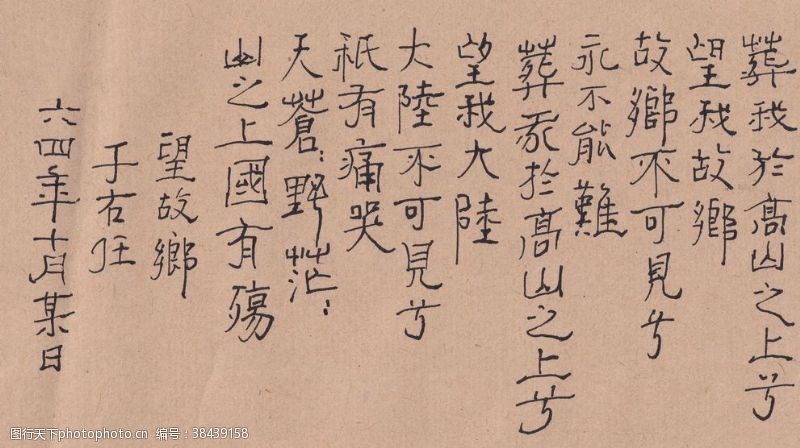 葬我於高山之上兮
望我故鄉
故鄉不可見兮
永不能難
葬我於高山之上兮
望我大陸
大陸不可見兮
祇有痛哭
天蒼:野茫:
山之上國有殤
望故鄉
于右任
六四年十月某日
图行天下 photophoto.cn 编号: 38439158